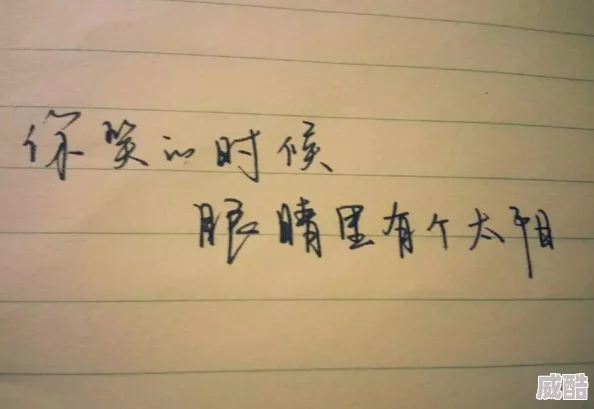 你笑的时候
眼睛里有个太阳
威酷